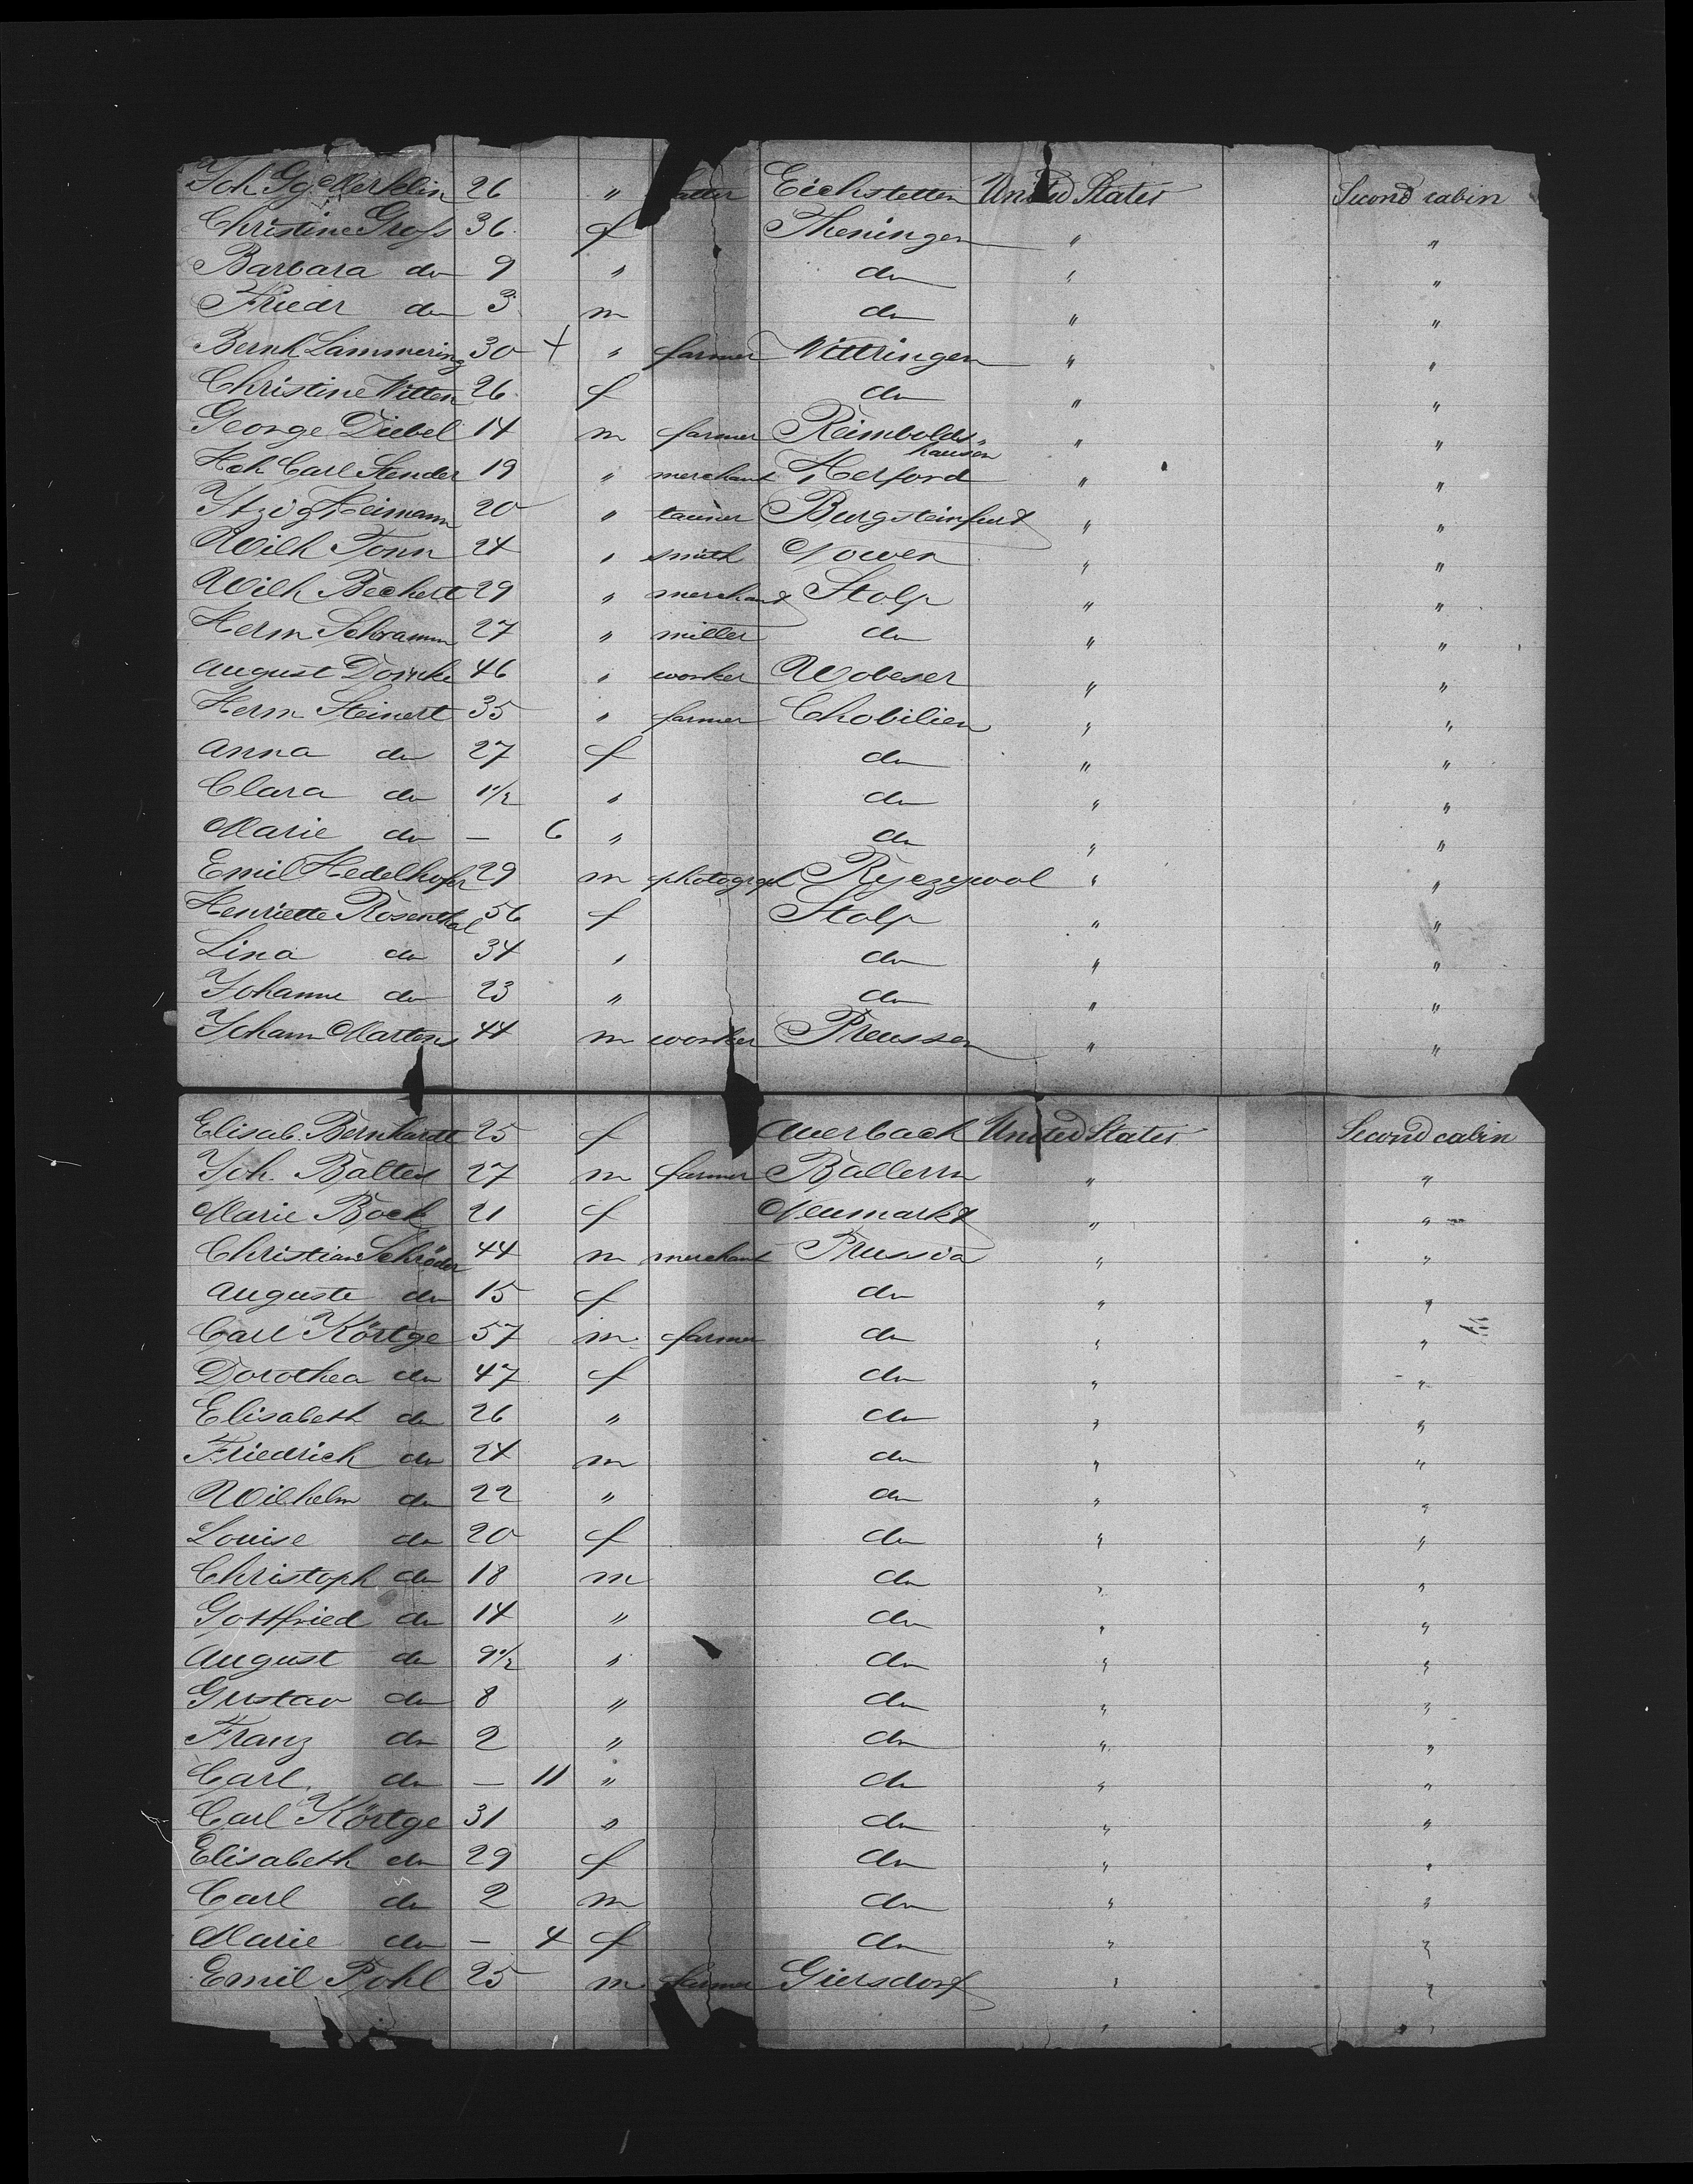 Joh Gg. Merklin 26 " Eichstetten United States Second cabin
Christine Gross 36 f Theningen " "
Barbara do 9 " do " "
Friedr do 3 m do " "
Bernh Lammering 30 + " farmer Wettringen " "
Christine Witten 26 f do " "
George Diebel 14 m farmer Reimbolds- " "
hausen
Hch Carl Stender 19 " merchant Herford " "
Itzig Heimann 20 " tanner Burgsteinfurt " "
Wilh Tonn 24 " smith Nowen " "
Wilh Bechert 29 " merchant Stolp " "
Herm Schramm 27 " miller do " "
August 46 " worker Wobeser " "
Herm Steinert 35 " farmer Chobilien " "
Anna do 27 f do " "
Clara do 1 1/2 " do " "
Marie do — 6 " do " "
Emil Hedelhofer 29 m photogrph Ryczywol " "
Henriette Rosenthal 56 f Stolp " "
Lina do 34 " do " "
Johanne do 23 " do " "
Johann Martens 44 m worker Preussen " "
Elisab. Bernhardt 25 f Auerbach United States Second cabin
Joh. Baltes 27 m farmer Ballern " "
Marie Bock 21 f Neumarkt " "
Christian Schröder 44 m merchant Prussia " "
Auguste do 15 f do " "
Carl Körtge 57 m farmer do " "
Dorothea do 47 f do " "
Elisabeth do 26 " do " "
Friedrich do 24 m do " "
Wilhelm do 22 " do " "
Louise do 20 f do " "
Christoph do 18 m do " "
Gottfried do 14 " do " "
August do 9 1/2 " do " "
Gustav do 8 " do " "
Franz do 2 " do " "
Carl do — 11 " do " "
Carl Körtge 31 " do " "
Elisabeth do 29 f do " "
Carl do 2 m do " "
Marie do — 4 f do " "
Emil Pohl 25 m farmer Giersdorf " "
" "